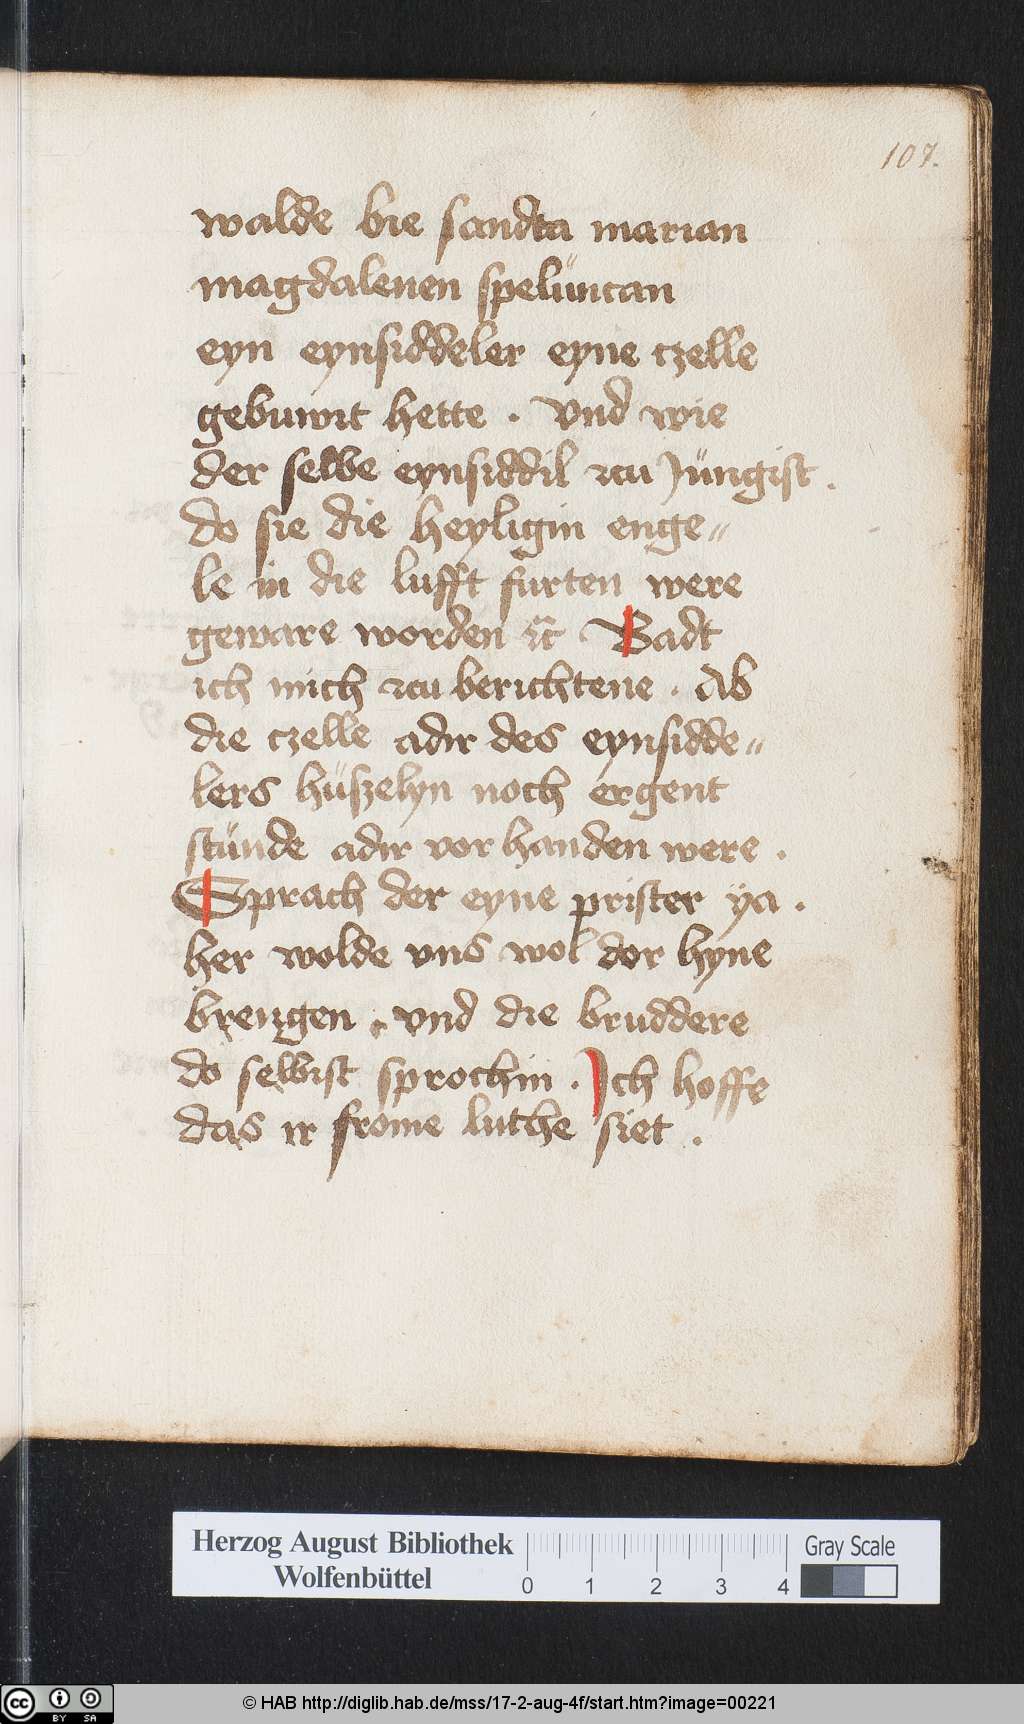 107.
walde bie sandta marian
magdalenen spelüncan
eyn eynsiddeler eyne czelle
gebuwit hette . vnd wie
der selbe eynsiddil zcu Jüngist .
do sie die heyligin enge„
le in die lufft furten were
geware worden ꝛc̃ Badt
ich mich zcu berichtene . Ab
die czelle adir des eynsidde„
lers hüszelyn noch ergent
stünde adir vor handen were .
Sprach der eyne prister ÿa .
her wolde vns wol dor hyne
brengen . vnd die bruddere
do selbist sprochin . Ich hoffe
das ir frome luthe siet .
Herzog August Bibliothek
Wolfenbüttel
0 1 2 3 4
Gray Scale
cc BY SA
© HAB http://diglib.hab.de/mss/17-2-aug-4f/start.htm?image=00221